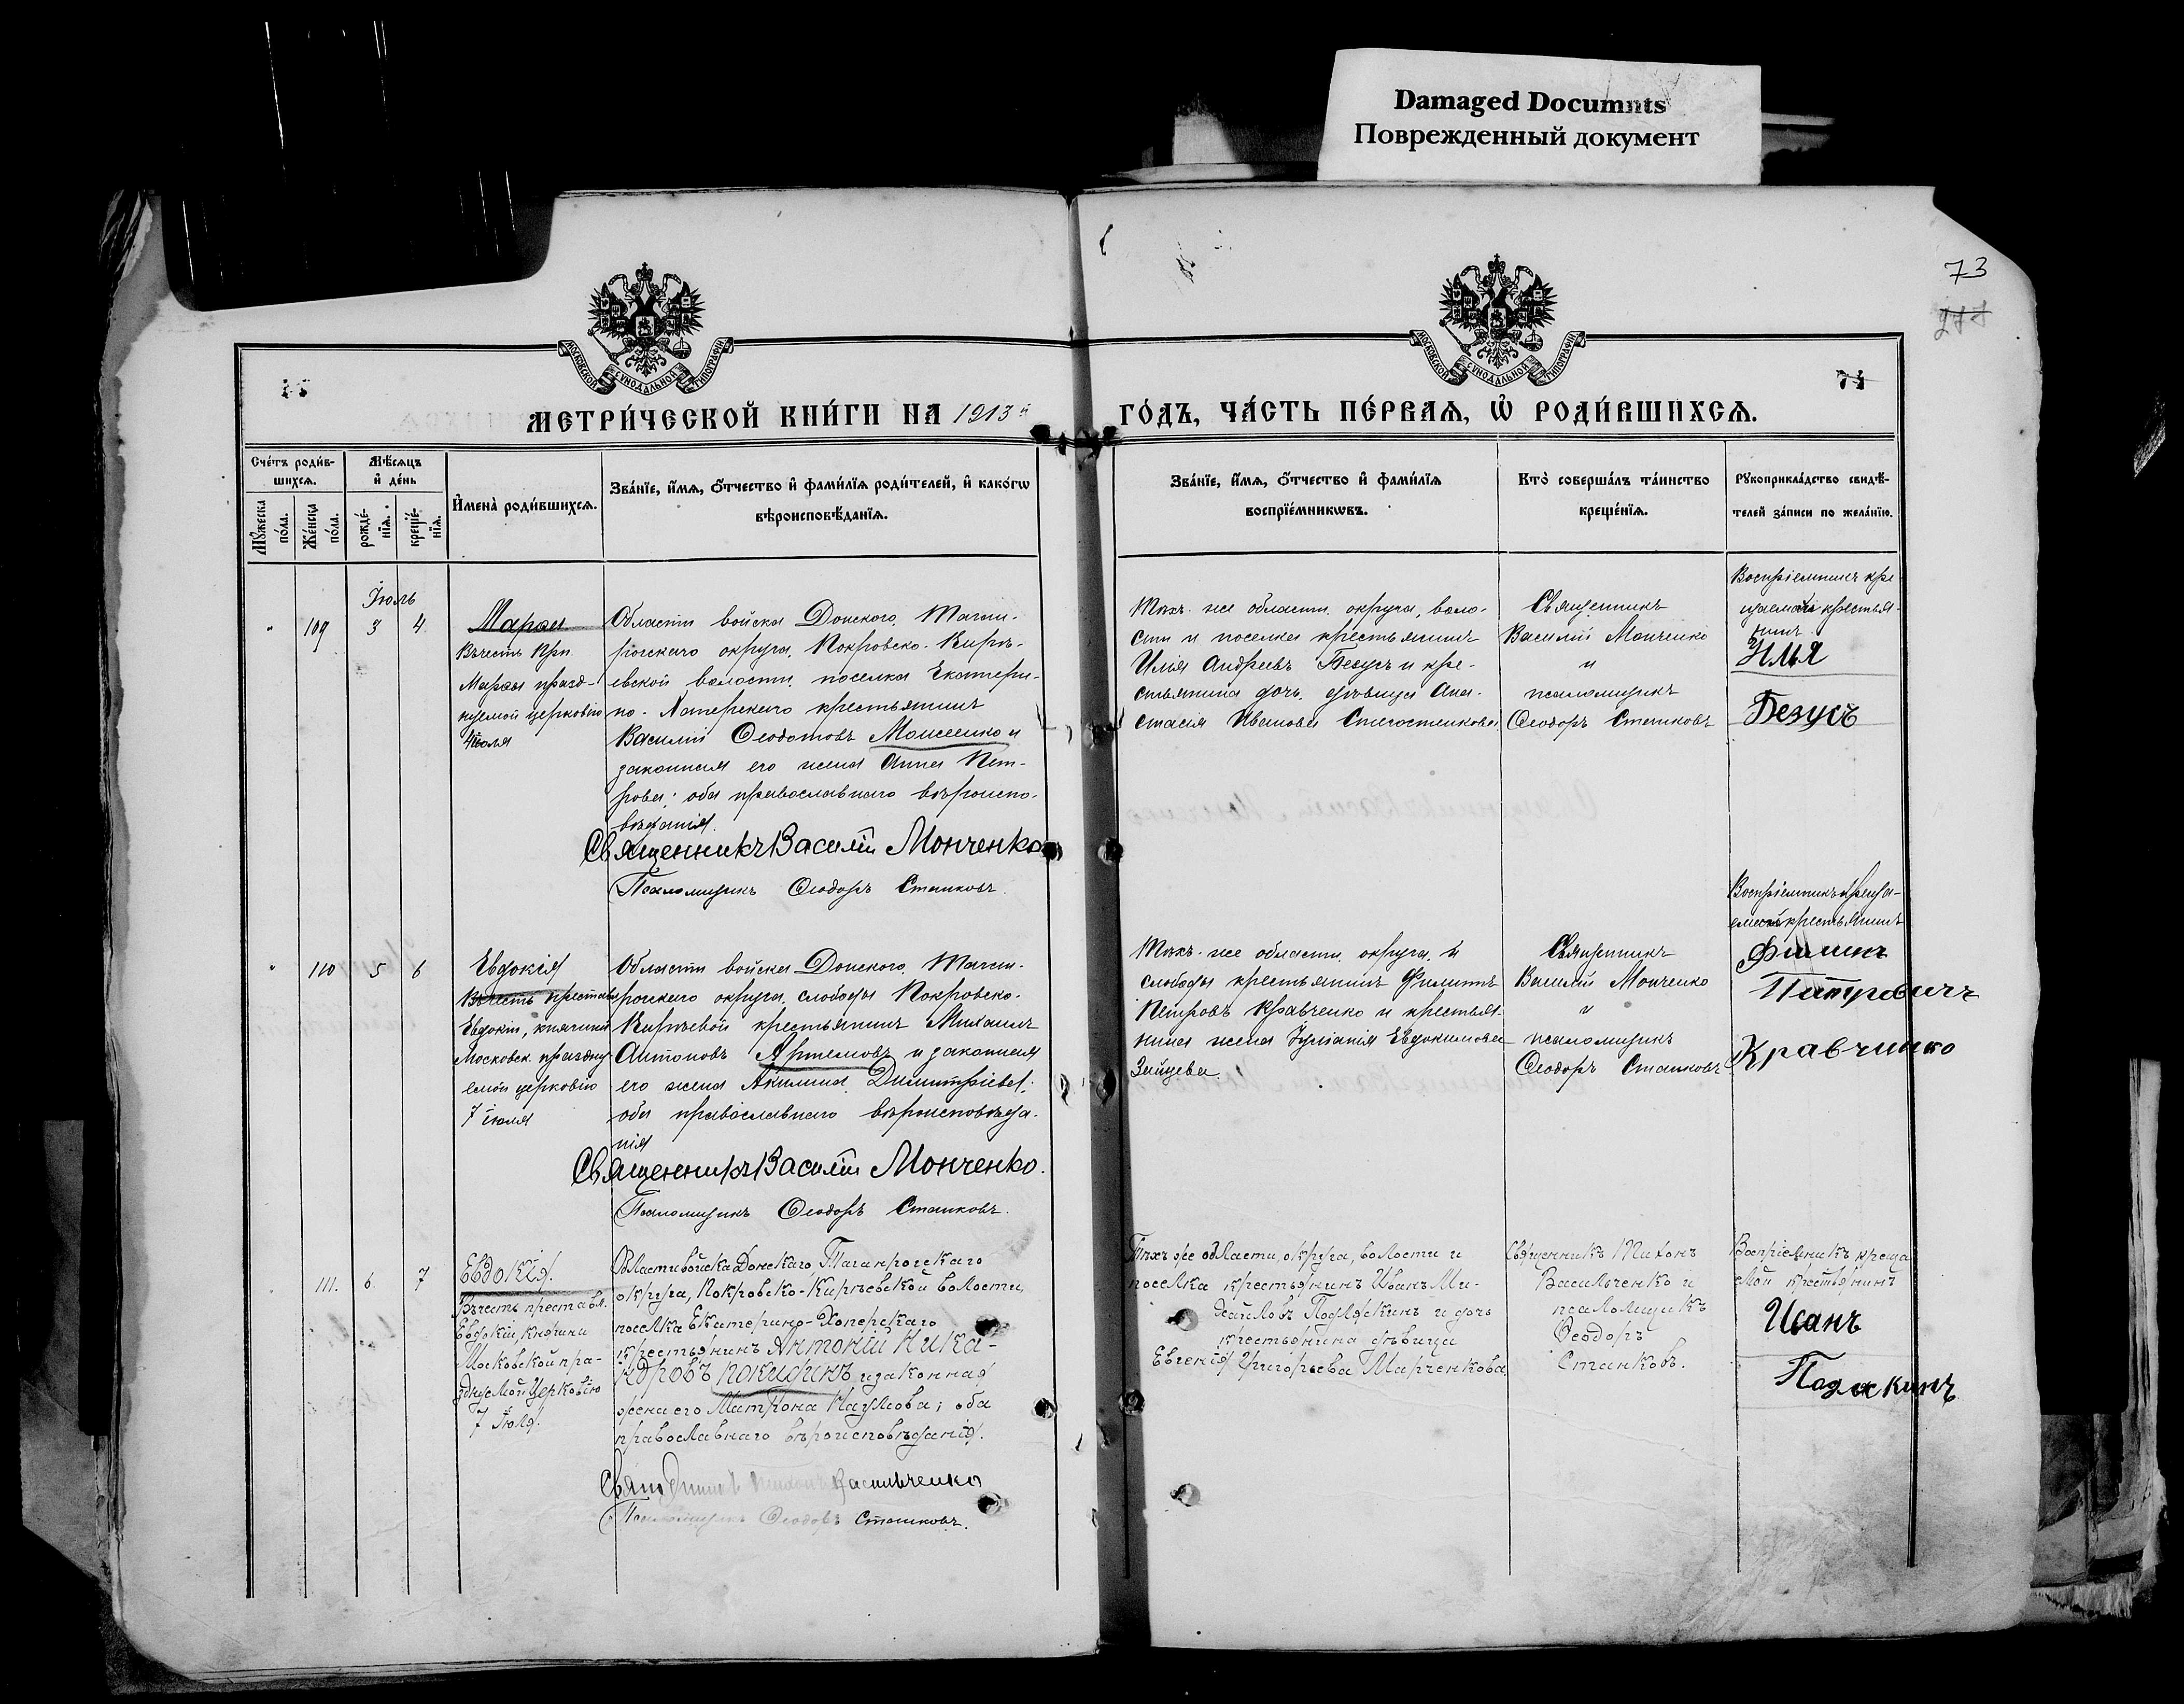 Damaged Documnts
Поврежденный документ
73
МОСКОВСКОЙ СѴНОДАЛЬНОЙ ТИПОГРАФІИ
МОСКОВСКОЙ СѴНОДАЛЬНОЙ ТИПОГРАФІИ
МЕТРИ́ЧЕСКОЙ КНИ́ГИ НА 1913й
ГО́ДЪ, ЧА́СТЬ ПЕ́РВАѦ, Ѡ҆ РОДИ́ВШИХСѦ.
Сче́тъ роди́в-
шихсѧ.
Мꙋ́жеска по́ла.
Же́нска по́ла.
Мѣ́сѧцъ
и҆ де́нь
рожде́-
нїѧ.
креще́-
нїѧ.
И҆мена̀ роди́вшихсѧ.
Зва́нїе, и҆́мѧ, ѻ҆́тчество и҆ фами́лїѧ роди́телей, и҆ како́гѡ
вѣроисповѣ́данїѧ.
Зва́нїе, и҆́мѧ, ѻ҆́тчество и҆ фами́лїѧ
воспрїе́мникѡвъ.
Кто̀ соверша́лъ та́инство
креще́нїѧ.
Рꙋкоприкла́дство свидѣ́-
телей за́писи по жела́нїю.
Іюль
" 109 3 4
Марѳа
Въ честь Прп.
Марѳы празд-
нуемой церковію
4 іюля
Области войска Донского, Таган-
рогскаго округа, Покровско-Киръ-
евской волости, поселка Екатери-
но-Хоперскаго крестьянинъ
Василій Ѳеодотовъ Моисеенко и
законная его жена Анна Пет-
рова; оба православнаго вѣроиспо-
вѣданія.
Священникъ Василій Монченко
Псаломщикъ Ѳеодоръ Станковъ.
Тѣхъ-же области, округа, воло-
сти и поселка крестьянинъ
Илія Андреевъ Безусъ и кре-
стьянина дочь, дѣвица Ана-
стасія Иванова
Священникъ
Василій Монченко
и
псаломщикъ
Ѳеодоръ Станковъ
Воспріемникъ кре-
щаемой крестья-
нинъ
Илья
Безусъ
" 110 5 6
Евдокія
Въ честь преставл.
Евдокіи, княгини
Московск. праздну-
емой церковію
7 іюля
Области войска Донского, Таган-
рогскаго округа, слободы Покровско-
Кирѣевой крестьянинъ Михаилъ
Антоновъ Артемовъ и законная
его жена Акилина Димитріева;
оба православнаго вѣроисповѣда-
нія
Священникъ Василій Монченко.
Псаломщикъ Ѳеодоръ Станковъ.
Тѣхъ-же области, округа, и
слободы крестьянинъ Филиппъ
Петровъ Кравченко и крестья-
нина жена Іуліанія Евдокимова
Зайцева.
Священникъ
Василій Монченко
и
псаломщикъ
Ѳеодоръ Станковъ
Воспріемникъ креща-
емой крестьянинъ
Филипъ
Питровичъ
Кравчинко
111. 6. 7
Евдокія.
Въ честь преставл.
Евдокіи, княгини
Московской пра-
зднуемой Церковію
7 Іюля.
Области войска Донскаго, Таганрогскаго
округа, Покровско-Кирѣевской волости,
поселка Екатерино-Хоперскаго
крестьянинъ Антоній Ника-
ндровъ Покидинъ и законная
жена его Матрона Наумова; оба
православнаго вѣроисповѣданія.
Священникъ Тихонъ Васильченко
Псаломщикъ Ѳеодоръ Станковъ.
Тѣхъ же области, округа, волости и
поселка крестьянинъ Иванъ Ми-
хайловъ Подляскинъ и дочь
крестьянина дѣвица
Евгенія Григорьева Марченкова
Священникъ Тихонъ
Васильченко и
псаломщикъ
Ѳеодоръ
Станковъ.
Воспріемникъ креща
емой крестьянинъ
Иванъ
Подласкинъ